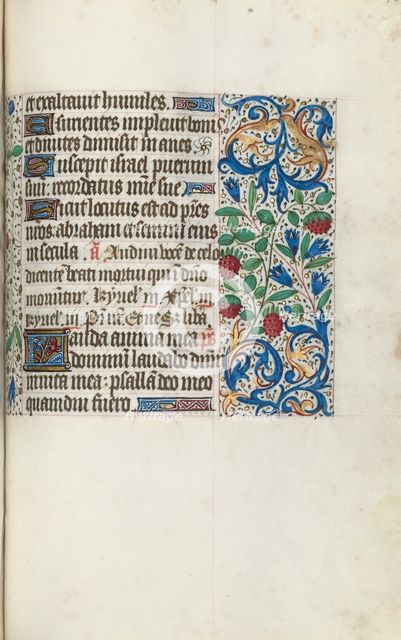 et exaltavit humiles.
Esurientes implevit bonis
et divites dimisit inanes
Suscepit israel puerum
suum recordatus mie sue
Sicut locutus est ad pres
nros abraham et semini eius
in secula. a Audivi voce de celo
dicente beati mortui qui i dno
moriutur. Kyriel. in Xpel. in
kyriel. in Pr nr. Et nes z liba
Lauda anima mea ps
dominu laudabo dnm
in vita mea: psallā deo meo
quamdiu fuero.